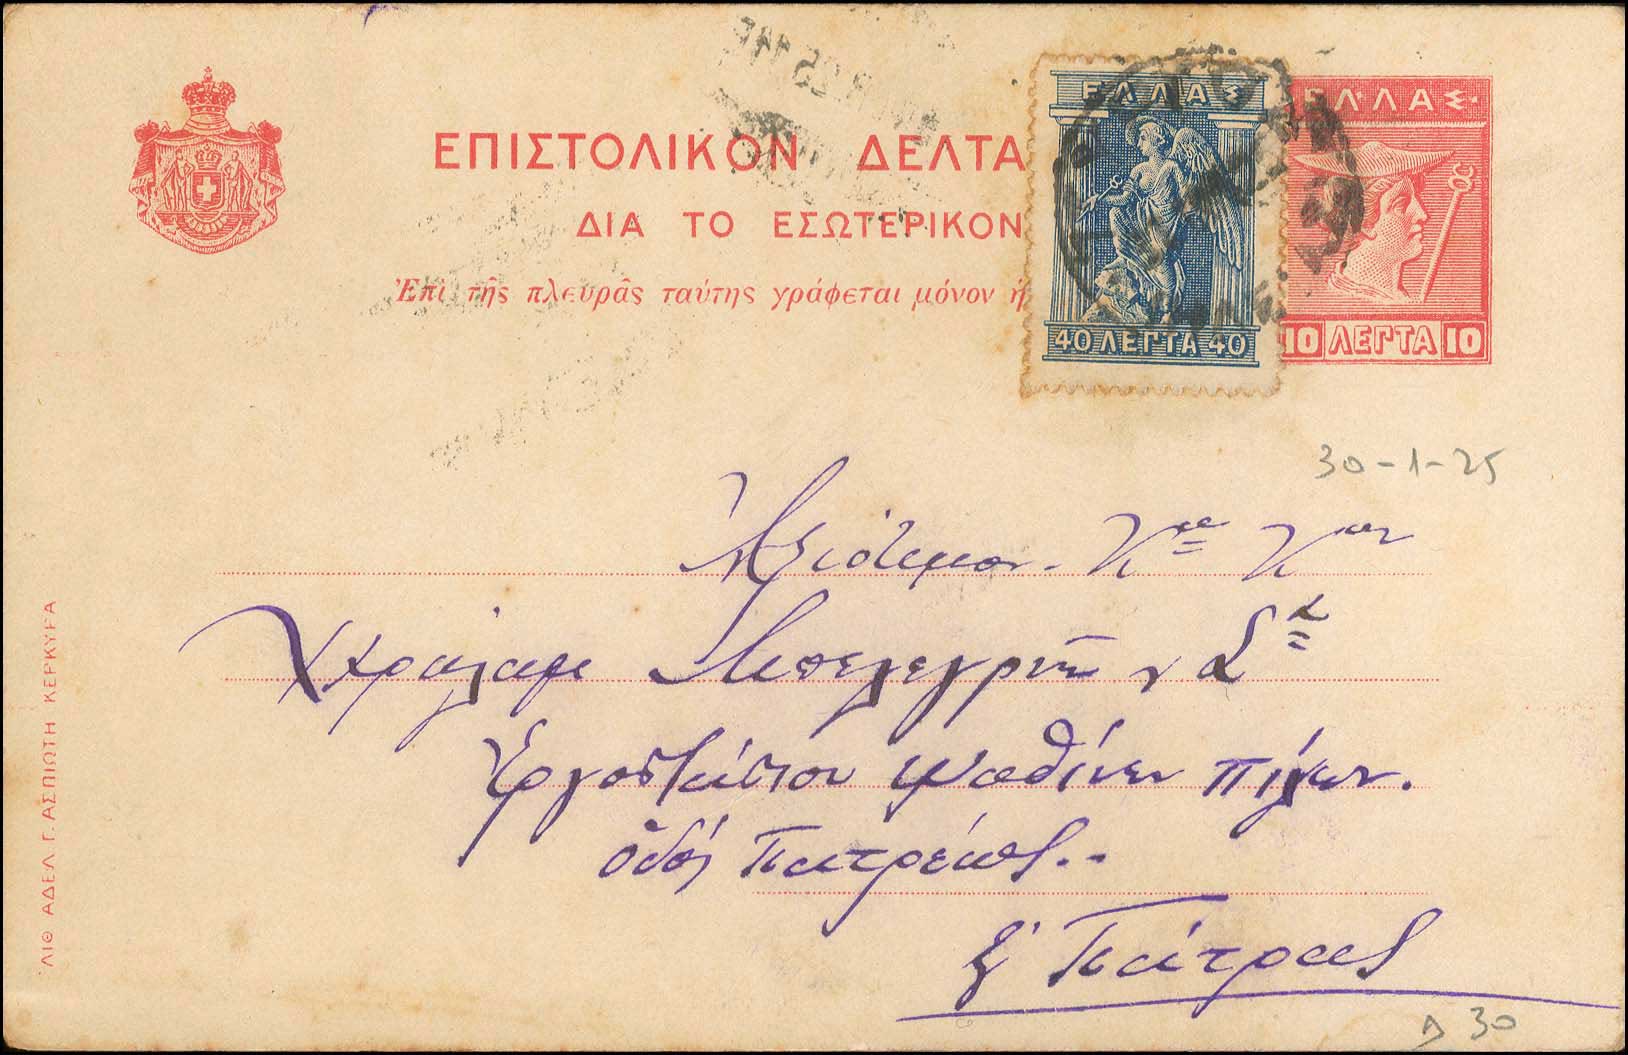 ΕΠΙΣΤΟΛΙΚΟΝ ΔΕΛΤΑ
ΔΙΑ ΤΟ ΕΣΩΤΕΡΙΚΟΝ
Ἐπὶ τῆς πλευρᾶς ταύτης γράφεται μόνον ἡ
ΕΛΛΑΣ
40 ΛΕΠΤΑ 40
ΕΛΛΑΣ
10 ΛΕΠΤΑ 10
30-1-25
Ἀξιότιμον
Χαραλαμ Μπελεγρίνη
Ἐργοστάσιον ψαθίνων πίλων.
ὁδός Πατρέως..
Πάτρας
30
ΛΙΘ ΑΔΕΛ. Γ. ΑΣΠΙΩΤΗ ΚΕΡΚΥΡΑ